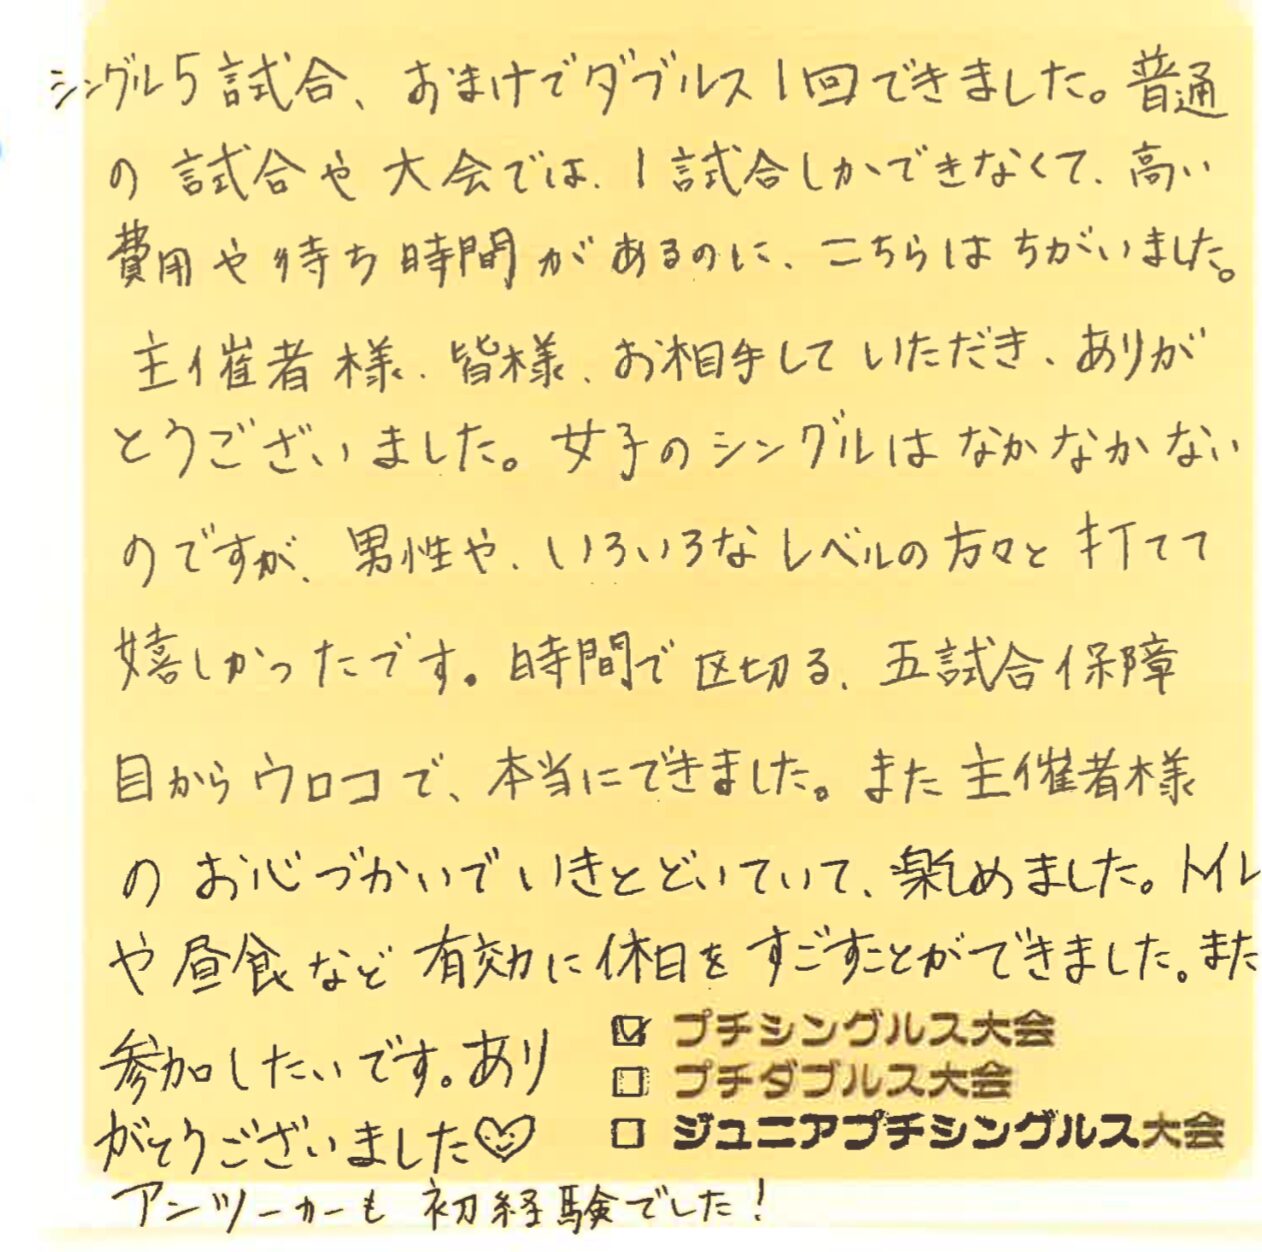 シングル5試合、おまけでダブルス1回できました。普通
の試合や大会では、1試合しかできなくて、高い
費用や待ち時間があるのに、こちらはちがいました。
主催者様、皆様、お相手していただき、ありが
とうございました。女子のシングルはなかなかない
のですが、男性や、いろいろなレベルの方々と打てて
嬉しかったです。時間で区切る、五試合保障
目からウロコで、本当にできました。また主催者様
のお心づかいでいきとどいていて、楽しめました。トイレ
や昼食など有効に休日をすごすことができました。また
参加したいです。あり
がとうございました♡
アンツーカーも初経験でした!
☑ プチシングルス大会
□ プチダブルス大会
□ ジュニアプチシングルス大会